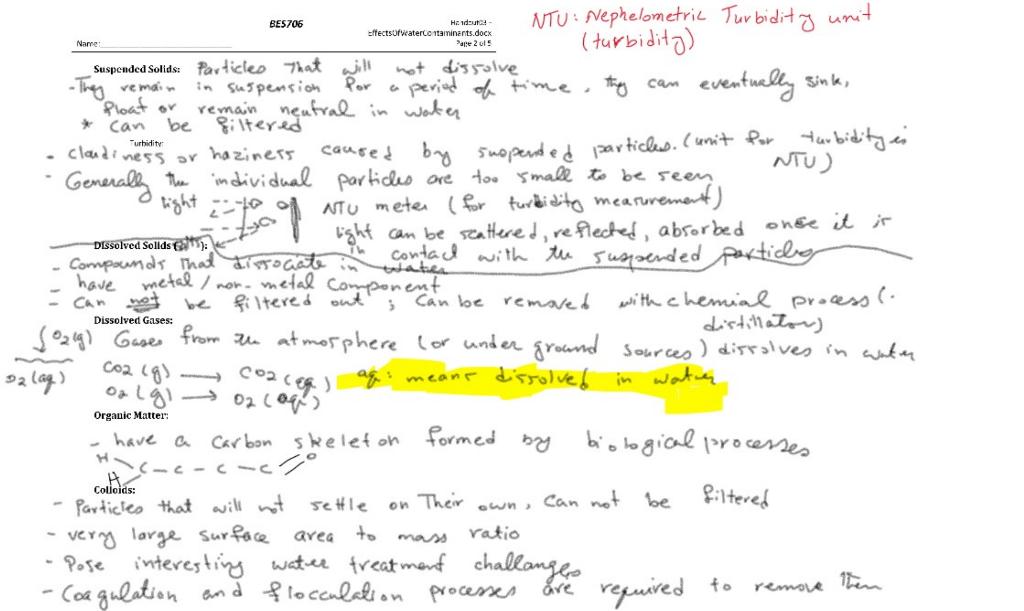 BE5706
Handout03 -
EffectsOfWaterContaminants.docx
Page 2 of 5
Name:
NTU: Nephelometric Turbidity unit
(turbidity)
Suspended Solids: Particles that will not dissolve
- They remain in suspension for a period of time, they can eventually sink,
float or remain neutral in water
* can be filtered
Turbidity:
- cloudiness or haziness caused by suspended particles. (unit for turbidity is
NTU)
- Generally the individual particles are too small to be seen
light NTU meter (for turbidity measurement)
light can be scattered, reflected, absorbed once it is
in contact with the suspended particles
Dissolved Solids
- Compounds that dissociate in water
- have metal / non-metal component
- Can not be filtered out ; Can be removed with chemial process (.
distillation)
Dissolved Gases:
O2(g) Gases from the atmosphere (or under ground sources) dissolves in water
O2 (aq)
CO2 (g) → CO2 (aq) aq: means dissolved in water
O2 (g) → O2 (aq)
Organic Matter:
- have a carbon skeleton formed by biological processes
H O
H C - C - C - C
Colloids:
- Particles that will not settle on Their own, Can not be filtered
- very large surface area to mass ratio
- Pose interesting water treatment challanges
- Coagulation and flocculation processes are required to remove them